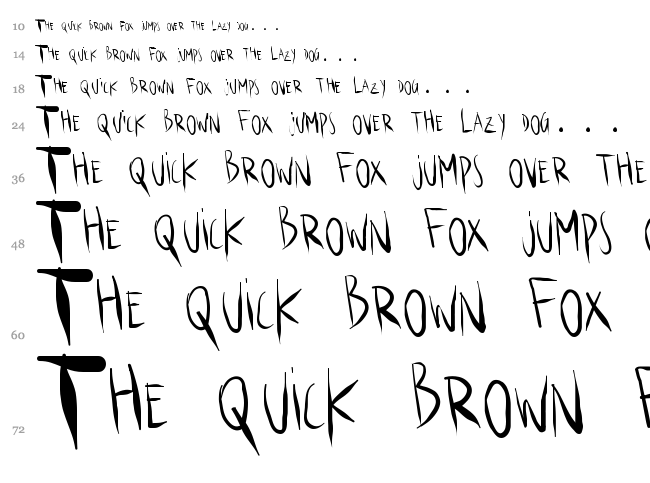 10 The quick Brown Fox jumps over the Lazy dog. . .
14 The quick Brown Fox jumps over the Lazy dog. . .
18 The quick Brown Fox jumps over the Lazy dog. . .
24 The quick Brown Fox jumps over the Lazy dog. . .
36 The quick Brown Fox jumps over the
48 The quick Brown Fox jumps
60 The quick Brown Fox
72 The quick Brown